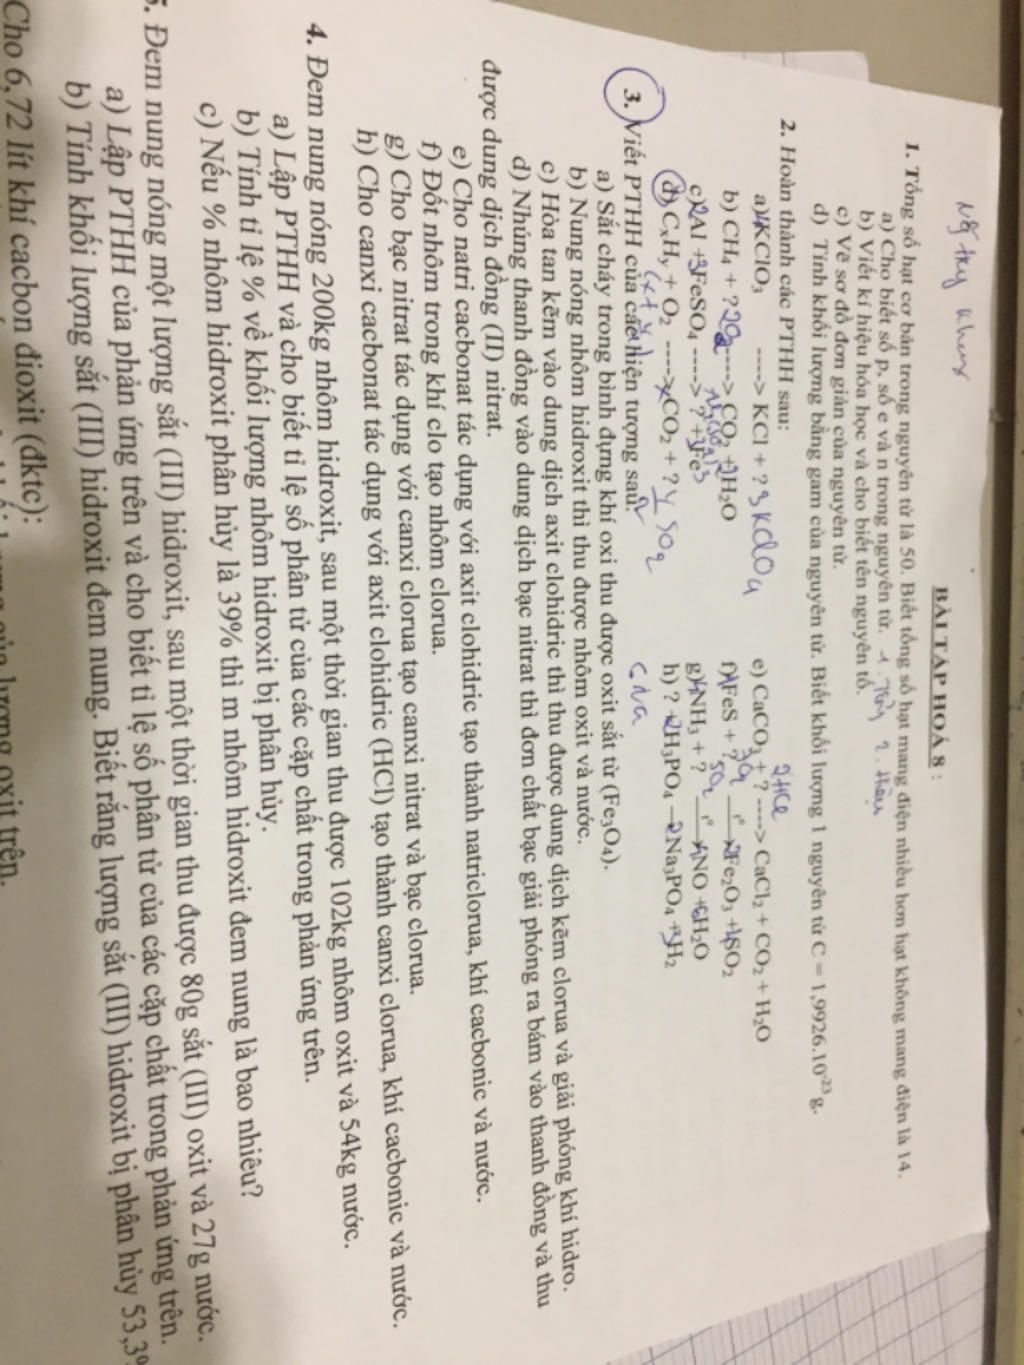 BÀI TẬP HOÁ 8 :
1. Tổng số hạt cơ bản trong nguyên tử là 50. Biết tổng số hạt mang điện nhiều hơn hạt không mang điện là 14.
a) Cho biết số p, số e và n trong nguyên tử.
b) Viết kí hiệu hóa học và cho biết tên nguyên tố.
c) Vẽ sơ đồ đơn giản của nguyên tử.
d) Tính khối lượng bằng gam của nguyên tử. Biết khối lượng 1 nguyên tử C = 1,9926.10⁻²³ g.
2. Hoàn thành các PTHH sau:
a) 4KClO₃ ----> KCl + ? 3KClO₄
b) CH₄ + ? 2O₂ ----> CO₂ + 2H₂O
c) 2Al + 3FeSO₄ ----> ? + 3Fe
Al₂(SO₄)₃
d) CₓHᵧ + O₂ ----> xCO₂ + ?
e) CaCO₃ + ? ----> CaCl₂ + CO₂ + H₂O
2HCl
f) 4FeS + ? 7O₂ t° → 2Fe₂O₃ + 4SO₂
g) 4NH₃ + ? 5O₂ t° → 4NO + 6H₂O
h) ? + 2H₃PO₄ → 2Na₃PO₄ + 3H₂
6Na
3. Viết PTHH của các hiện tượng sau:
a) Sắt cháy trong bình đựng khí oxi thu được oxit sắt từ (Fe₃O₄).
b) Nung nóng nhôm hidroxit thì thu được nhôm oxit và nước.
c) Hòa tan kẽm vào dung dịch axit clohidric thì thu được dung dịch kẽm clorua và giải phóng khí hidro.
d) Nhúng thanh đồng vào dung dịch bạc nitrat thì đơn chất bạc giải phóng ra bám vào thanh đồng và thu
được dung dịch đồng (II) nitrat.
e) Cho natri cacbonat tác dụng với axit clohidric tạo thành natriclorua, khí cacbonic và nước.
f) Đốt nhôm trong khí clo tạo nhôm clorua.
g) Cho bạc nitrat tác dụng với canxi clorua tạo canxi nitrat và bạc clorua.
h) Cho canxi cacbonat tác dụng với axit clohidric (HCl) tạo thành canxi clorua, khí cacbonic và nước.
4. Đem nung nóng 200kg nhôm hidroxit, sau một thời gian thu được 102kg nhôm oxit và 54kg nước.
a) Lập PTHH và cho biết tỉ lệ số phân tử của các cặp chất trong phản ứng trên.
b) Tính tỉ lệ % về khối lượng nhôm hidroxit bị phân hủy.
c) Nếu % nhôm hidroxit phân hủy là 39% thì m nhôm hidroxit đem nung là bao nhiêu?
5. Đem nung nóng một lượng sắt (III) hidroxit, sau một thời gian thu được 80g sắt (III) oxit và 27g nước.
a) Lập PTHH của phản ứng trên và cho biết tỉ lệ số phân tử của các cặp chất trong phản ứng trên.
b) Tính khối lượng sắt (III) hidroxit đem nung. Biết rằng lượng sắt (III) hidroxit bị phân hủy 53,3%
Cho 6,72 lít khí cacbon đioxit (đktc):
lượng oxit trên.